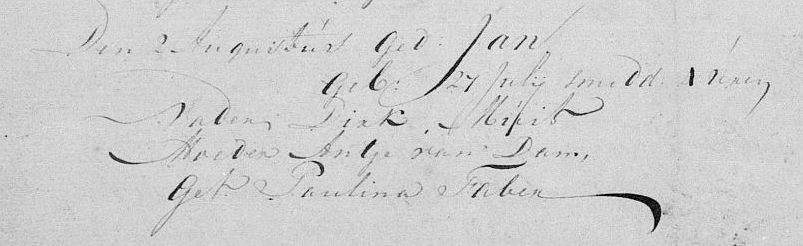 Den 2 Augustus Ged: Jan
Geb: 27 July smidd.
Vader Dirk Muis
Moeder Antje van Dam,
Get. Paulina Faber